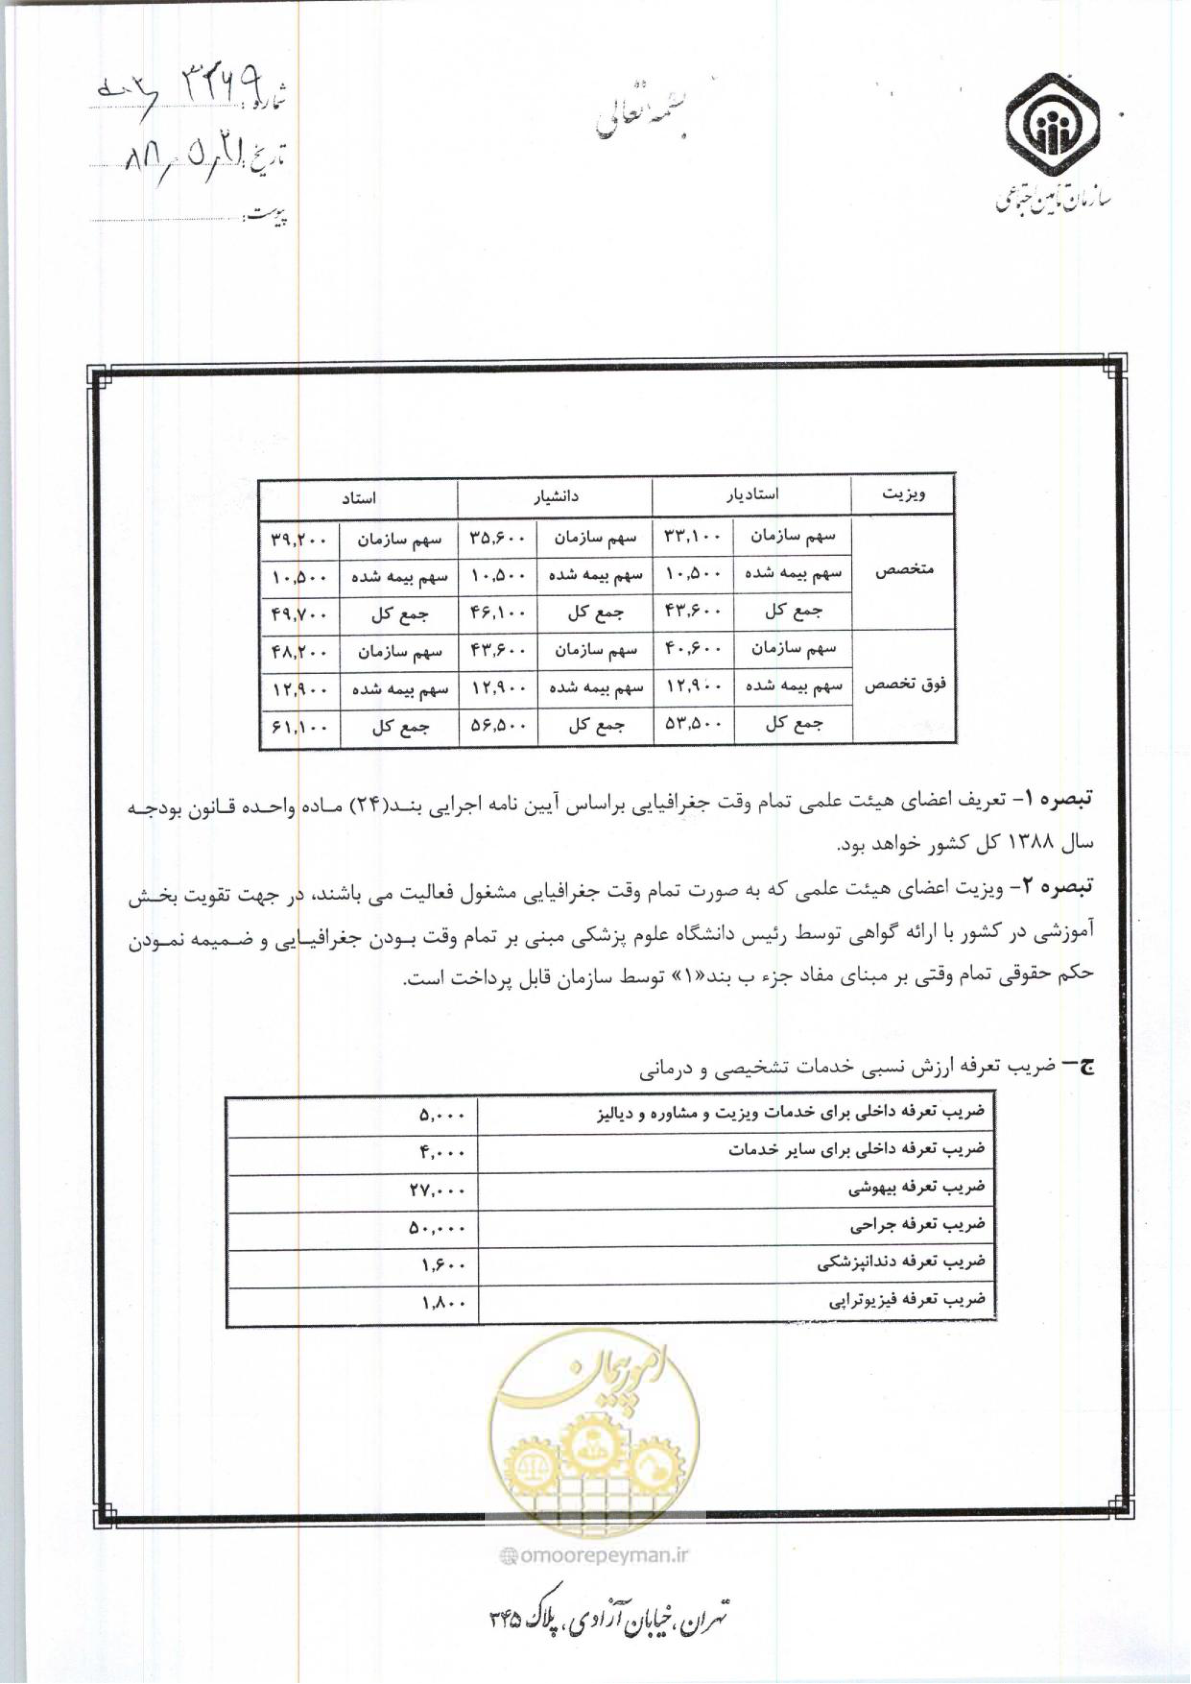 بسمه تعالی
سازمان تأمین اجتماعی
شماره:
تاریخ: ۸۸/۵/۲۱
پیوست:
ویزیت استادیار دانشیار استاد
متخصص
سهم سازمان ۳۳,۱۰۰ سهم سازمان ۳۵,۶۰۰ سهم سازمان ۳۹,۲۰۰
سهم بیمه شده ۱۰,۵۰۰ سهم بیمه شده ۱۰,۵۰۰ سهم بیمه شده ۱۰,۵۰۰
جمع کل ۴۳,۶۰۰ جمع کل ۴۶,۱۰۰ جمع کل ۴۹,۷۰۰
فوق تخصص
سهم سازمان ۴۰,۶۰۰ سهم سازمان ۴۳,۶۰۰ سهم سازمان ۴۸,۲۰۰
سهم بیمه شده ۱۲,۹۰۰ سهم بیمه شده ۱۲,۹۰۰ سهم بیمه شده ۱۲,۹۰۰
جمع کل ۵۳,۵۰۰ جمع کل ۵۶,۵۰۰ جمع کل ۶۱,۱۰۰
تبصره ۱- تعریف اعضای هیئت علمی تمام وقت جغرافیایی براساس آیین نامه اجرایی بند(۲۴) ماده واحده قانون بودجه
سال ۱۳۸۸ کل کشور خواهد بود.
تبصره ۲- ویزیت اعضای هیئت علمی که به صورت تمام وقت جغرافیایی مشغول فعالیت می باشند، در جهت تقویت بخش
آموزشی در کشور با ارائه گواهی توسط رئیس دانشگاه علوم پزشکی مبنی بر تمام وقت بودن جغرافیایی و ضمیمه نمودن
حکم حقوقی تمام وقتی بر مبنای مفاد جزء ب بند«۱» توسط سازمان قابل پرداخت است.
ج– ضریب تعرفه ارزش نسبی خدمات تشخیصی و درمانی
ضریب تعرفه داخلی برای خدمات ویزیت و مشاوره و دیالیز ۵,۰۰۰
ضریب تعرفه داخلی برای سایر خدمات ۴,۰۰۰
ضریب تعرفه بیهوشی ۲۷,۰۰۰
ضریب تعرفه جراحی ۵۰,۰۰۰
ضریب تعرفه دندانپزشکی ۱,۶۰۰
ضریب تعرفه فیزیوتراپی ۱,۸۰۰
امور پیمان
@omoorepeyman.ir
تهران، خیابان آزادی، پلاک ۳۴۵